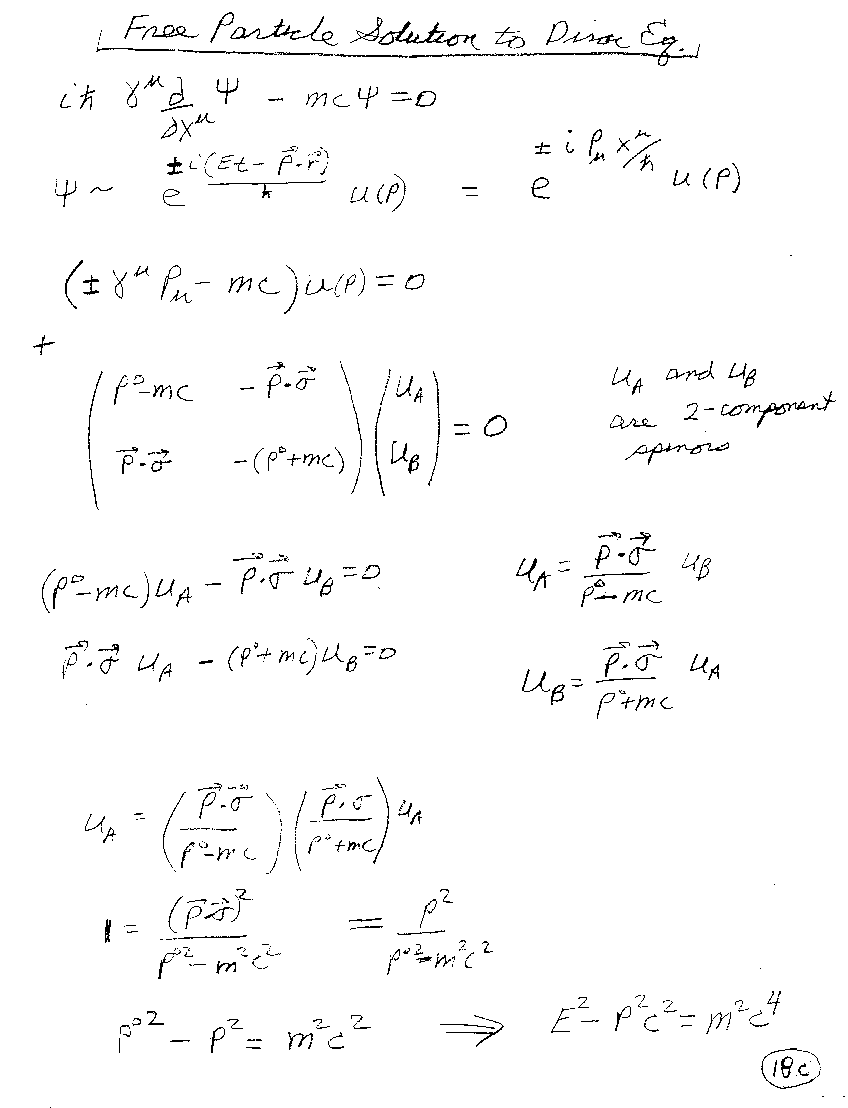 Free Particle Solution to Dirac Eq.
iℏ γ^μ ∂/∂x^μ Ψ - mcΨ = 0
Ψ ~ e^{±i(Et - p⃗·r⃗)/ℏ} u(p) = e^{±i p_μ x^μ/ℏ} u(p)
(± γ^μ p_μ - mc) u(p) = 0
+
( p⁰-mc   -p⃗·σ⃗ ) ( u_A )
( p⃗·σ⃗   -(p⁰+mc) ) ( u_B ) = 0
u_A and u_B
are 2-component
spinors
(p⁰-mc)u_A - p⃗·σ⃗ u_B = 0
p⃗·σ⃗ u_A - (p⁰+mc)u_B = 0
u_A = p⃗·σ⃗/(p⁰-mc) u_B
u_B = p⃗·σ⃗/(p⁰+mc) u_A
u_A = (p⃗·σ⃗/(p⁰-mc)) (p⃗·σ/(p⁰+mc)) u_A
1 = (p⃗·σ⃗)²/(p⁰²-m²c²) = p²/(p⁰²-m²c²)
p⁰² - p² = m²c² ⟹ E² - p²c² = m²c⁴
18c